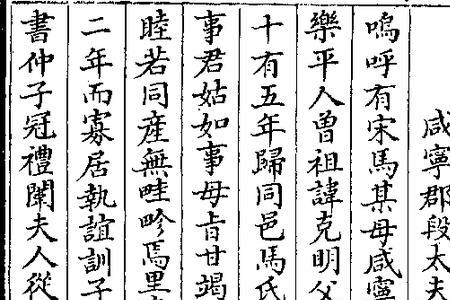 咸寧郡段太夫
嗚呼有宋馬某母咸寧
樂平人曾祖諱克明父
十有五年歸同邑馬氏
事君姑如事母㫖甘竭
睦若同産無畦畛焉里
二年而寡居執誼訓子
書仲子冠禮闈夫人從